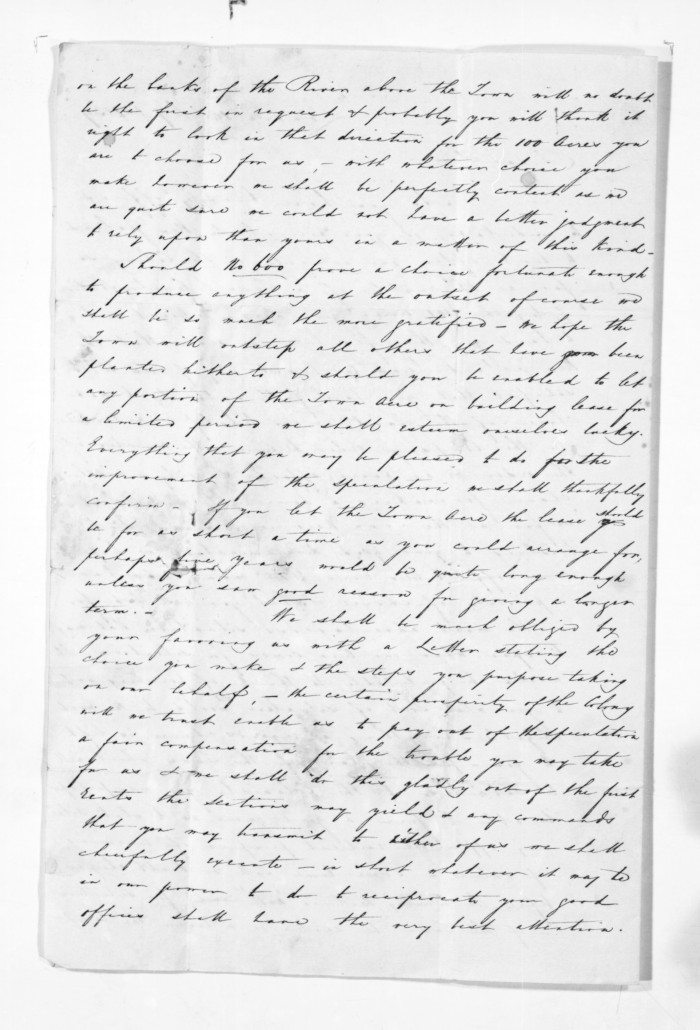 on the banks of the River above the Town will no doubt
be the first in request & probably you will think it
right to look in that direction for the 100 Acres you
are to choose for us, - with whatever choice you
make however we shall be perfectly content as we
are quite sure we could not have a better judgment
to rely upon than yours in a matter of this kind -
Should No 600 prove a choice fortunate enough
to produce anything at the outset of course we
shall be so much the more gratified - We hope the
Town will outstep all others that have been
planted hitherto & should you be enabled to let
any portion of the Town Acre on building lease for
a limited period we shall esteem ourselves lucky.
Everything that you may be pleased to do for the
improvement of the speculation we shall thankfully
confirm - If you let the Town Acre the lease should
be for as short a time as you could arrange for,
perhaps five years would be quite long enough
unless you saw good reason for giving a longer
term. - We shall be much obliged by
your favoring us with a Letter stating the
choice you make & the steps you purpose taking
on our behalf, - the certain prosperity of the Colony
will we trust enable us to pay out of the speculation
a fair compensation for the trouble you may take
for us & we shall do this gladly out of the first
rents the sections may yield & any commands
that you may transmit to either of us we shall
cheerfully execute - in short whatever it may be
in our power to do to reciprocate your good
offices shall have the very best attention.